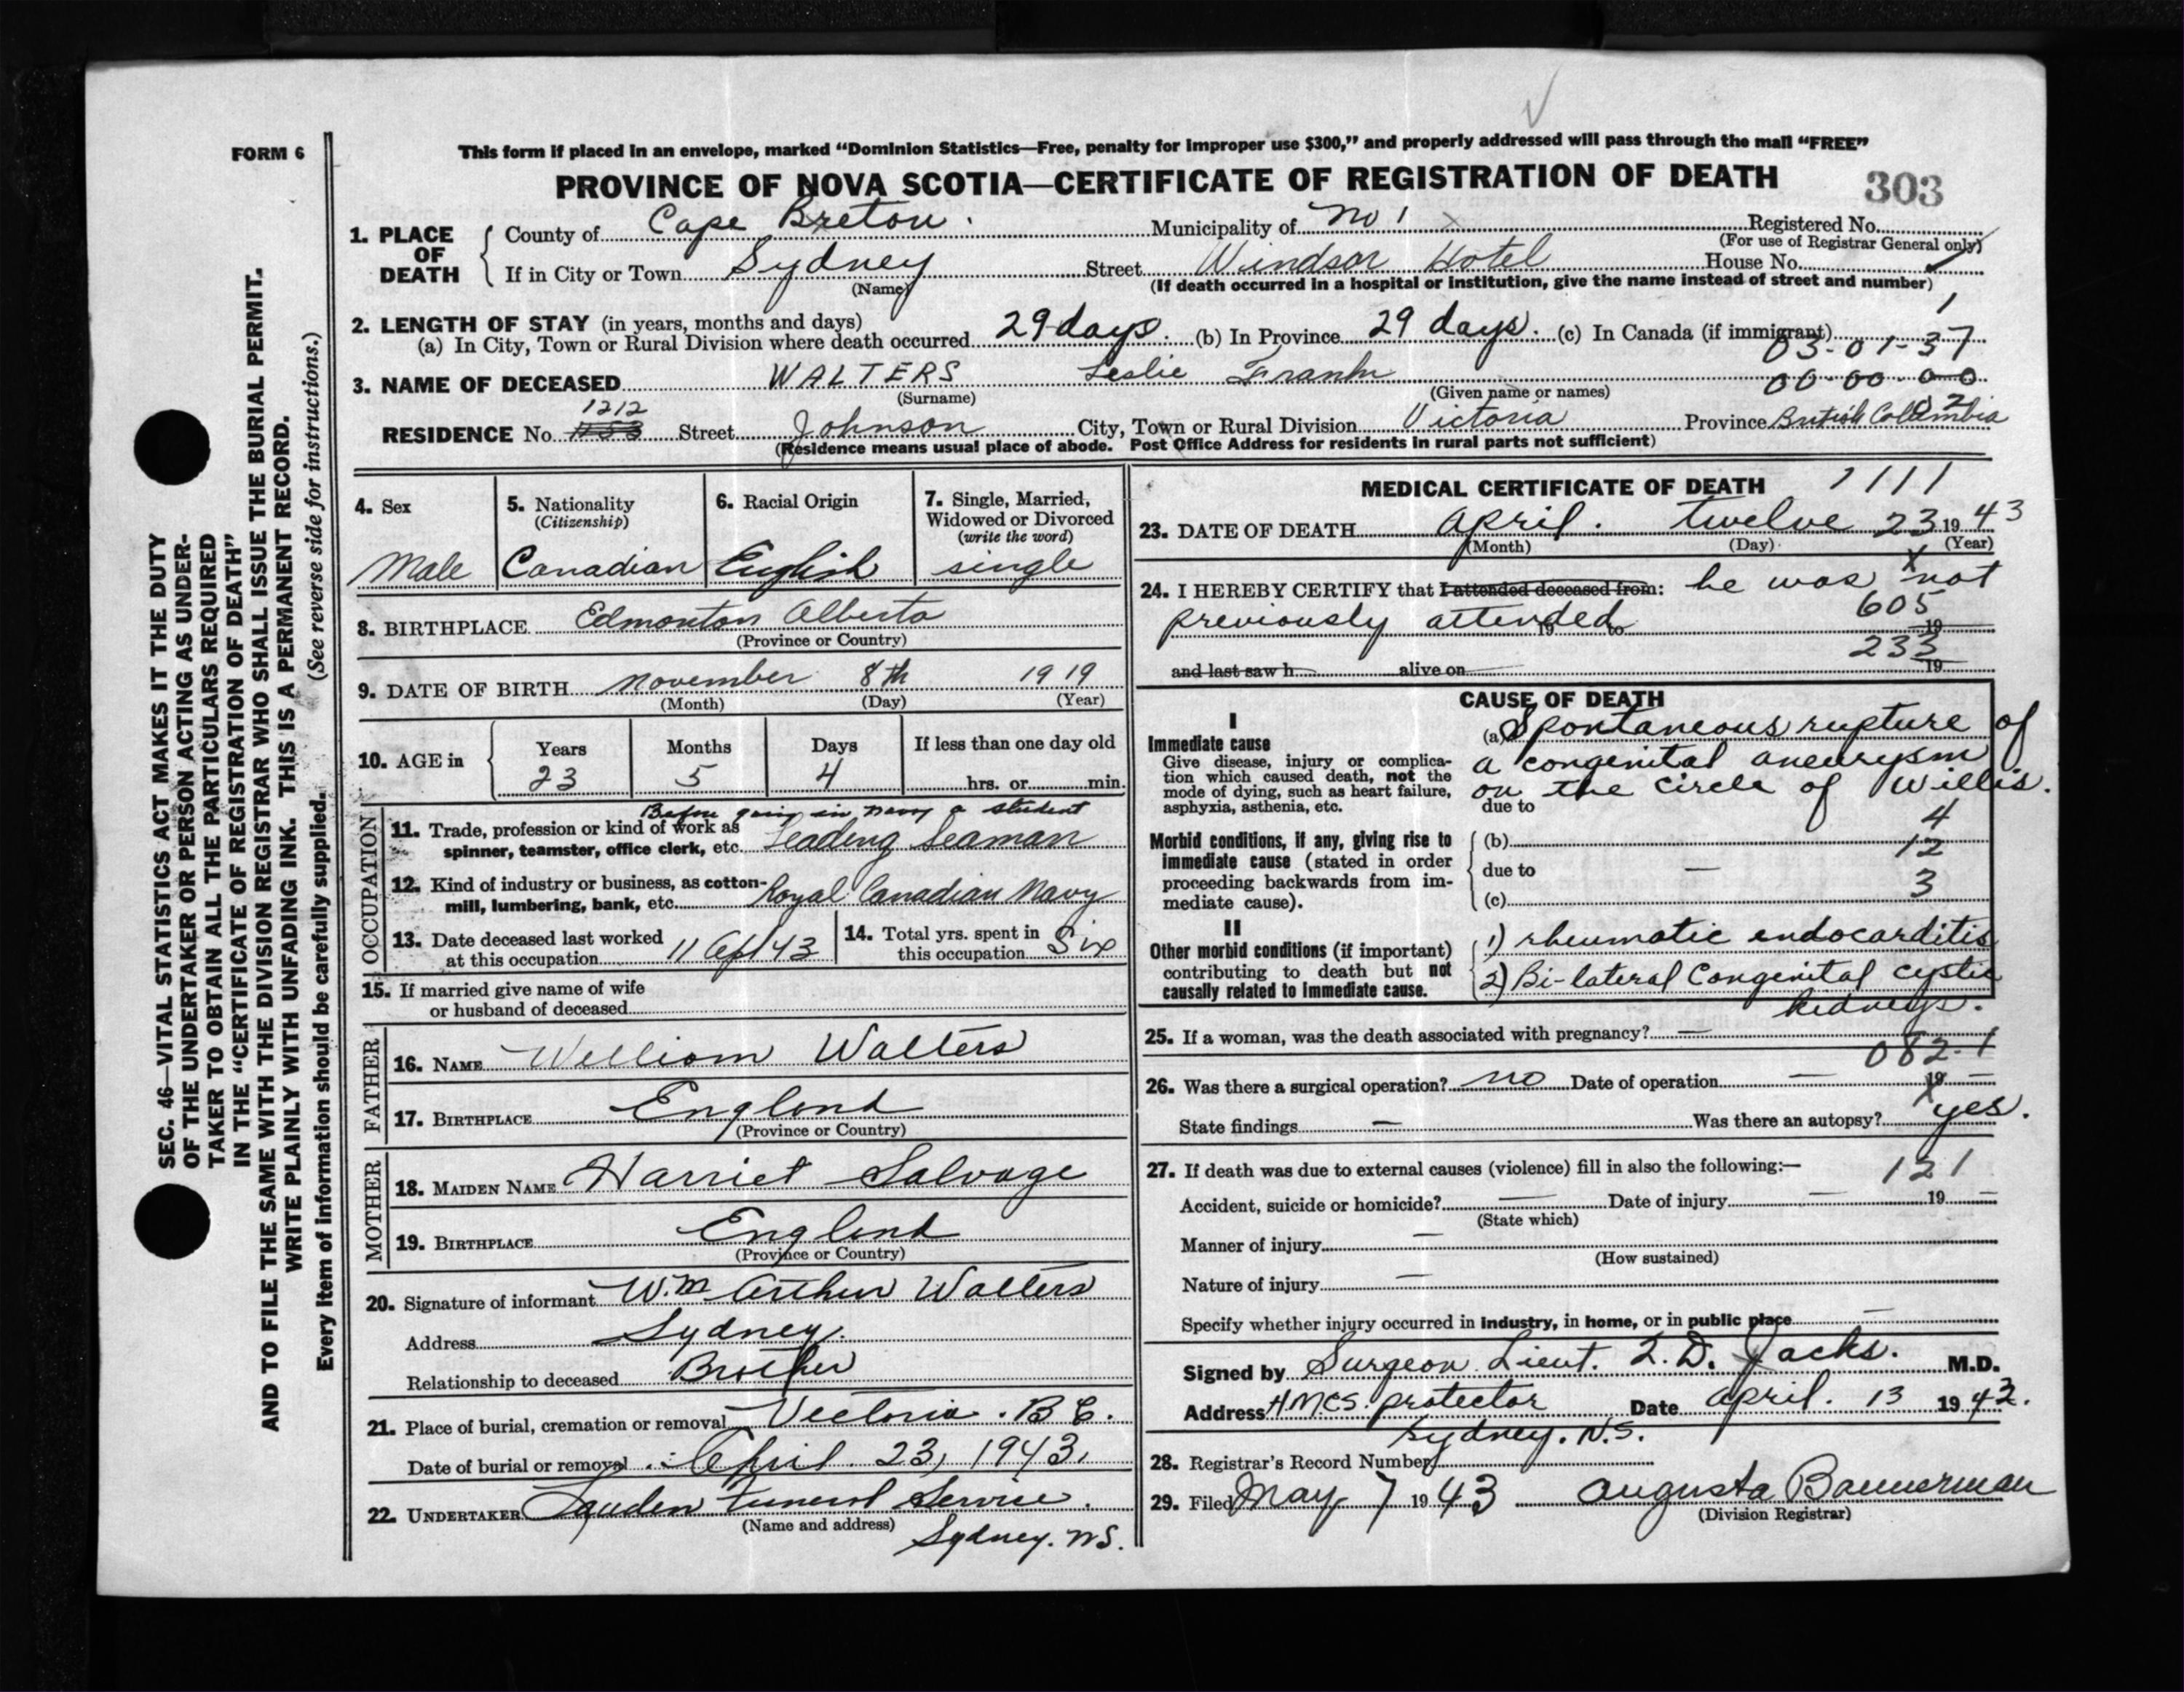 FORM 6
This form if placed in an envelope, marked “Dominion Statistics—Free, penalty for improper use $300,” and properly addressed will pass through the mail “FREE”
PROVINCE OF NOVA SCOTIA—CERTIFICATE OF REGISTRATION OF DEATH
303
1. PLACE OF DEATH
County of Cape Breton. Municipality of No 1 Registered No.
(For use of Registrar General only)
If in City or Town Sydney Street Windsor Hotel House No.
(Name) (If death occurred in a hospital or institution, give the name instead of street and number)
2. LENGTH OF STAY (in years, months and days) 1
(a) In City, Town or Rural Division where death occurred 29 days. (b) In Province 29 days. (c) In Canada (if immigrant)
03-01-37
3. NAME OF DECEASED WALTERS Leslie Frank 00-00-00
(Surname) (Given name or names)
1212
RESIDENCE No. Street Johnson City, Town or Rural Division Victoria Province British Columbia
(Residence means usual place of abode. Post Office Address for residents in rural parts not sufficient)
4. Sex
Male
5. Nationality
(Citizenship)
Canadian
6. Racial Origin
English
7. Single, Married,
Widowed or Divorced
(write the word)
single
8. BIRTHPLACE Edmonton Alberta
(Province or Country)
9. DATE OF BIRTH November 8th 1919
(Month) (Day) (Year)
10. AGE in
Years Months Days If less than one day old
23 5 4 hrs. or min.
OCCUPATION
Before going in navy a student
11. Trade, profession or kind of work as
spinner, teamster, office clerk, etc. Leading Seaman
12. Kind of industry or business, as cotton-
mill, lumbering, bank, etc. Royal Canadian Navy
13. Date deceased last worked
at this occupation 11 Apl 43
14. Total yrs. spent in
this occupation Six
15. If married give name of wife
or husband of deceased
FATHER
16. NAME William Walters
17. BIRTHPLACE England
(Province or Country)
MOTHER
18. MAIDEN NAME Harriet Salvage
19. BIRTHPLACE England
(Province or Country)
20. Signature of informant Wm Arthur Walters
Address Sydney.
Relationship to deceased Brother
21. Place of burial, cremation or removal Victoria. B C.
Date of burial or removal April. 23, 1943.
22. UNDERTAKER Funeral Service.
(Name and address) Sydney. NS.
MEDICAL CERTIFICATE OF DEATH 1111
23. DATE OF DEATH April. twelve 23 19 43
(Month) (Day) (Year)
24. I HEREBY CERTIFY that I attended deceased from: he was not
previously attended 19 to 605 19
and last saw h alive on 233 19
CAUSE OF DEATH
I
Immediate cause
Give disease, injury or complica-
tion which caused death, not the
mode of dying, such as heart failure,
asphyxia, asthenia, etc.
(a) Spontaneous rupture of
a congenital aneurysm
on the circle of Willis.
due to
4
Morbid conditions, if any, giving rise to
immediate cause (stated in order
proceeding backwards from im-
mediate cause).
(b) 12
due to —
(c) 3
II
Other morbid conditions (if important)
contributing to death but not
causally related to immediate cause.
1) rheumatic endocarditis
2) Bi-lateral Congenital cystic
kidneys.
25. If a woman, was the death associated with pregnancy? —
082-1
26. Was there a surgical operation? no Date of operation — 19 —
State findings — Was there an autopsy? yes.
27. If death was due to external causes (violence) fill in also the following:— 121
Accident, suicide or homicide? — Date of injury — 19 —
(State which)
Manner of injury —
(How sustained)
Nature of injury —
Specify whether injury occurred in industry, in home, or in public place —
Signed by Surgeon Lieut. D. Jacks. M.D.
Address H.M.C.S. protector Date April. 13 1943.
Sydney. N.S.
28. Registrar's Record Number
29. Filed May 7 1943 Augusta Bannerman
(Division Registrar)
SEC. 46—VITAL STATISTICS ACT MAKES IT THE DUTY
OF THE UNDERTAKER OR PERSON ACTING AS UNDER-
TAKER TO OBTAIN ALL THE PARTICULARS REQUIRED
IN THE “CERTIFICATE OF REGISTRATION OF DEATH”
AND TO FILE THE SAME WITH THE DIVISION REGISTRAR WHO SHALL ISSUE THE BURIAL PERMIT.
WRITE PLAINLY WITH UNFADING INK. THIS IS A PERMANENT RECORD.
Every item of information should be carefully supplied. (See reverse side for instructions.)